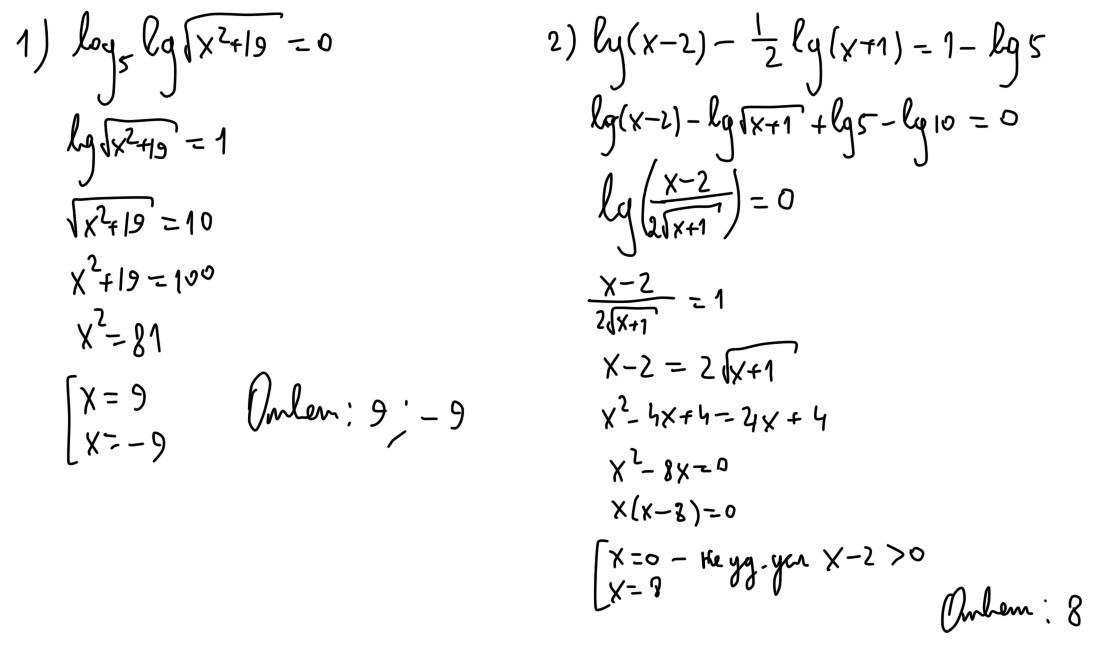 1) log₅ lg√(x²+19) = 0
lg√(x²+19) = 1
√(x²+19) = 10
x²+19 = 100
x² = 81
[ x = 9
x = -9
Ответ: 9; -9
2) lg(x-2) - 1/2 lg(x+1) = 1 - lg5
lg(x-2) - lg√(x+1) + lg5 - lg10 = 0
lg((x-2)/(2√(x+1))) = 0
(x-2)/(2√(x+1)) = 1
x-2 = 2√(x+1)
x² - 4x + 4 = 4x + 4
x² - 8x = 0
x(x-8) = 0
[ x = 0 - не уд. усл x-2 > 0
x = 8
Ответ: 8